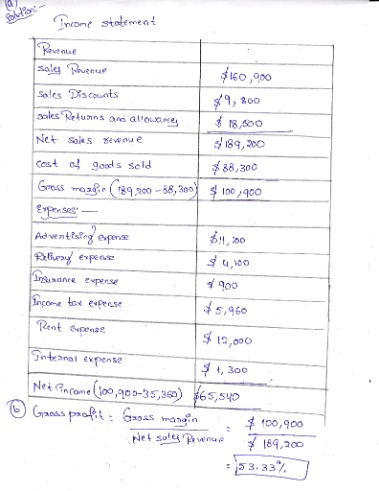 (a)
Solution:-
Income statement
Revenue
Sales Revenue $160,900
Sales Discounts $9,800
Sales Returns and allowances $ 18,500
Net Sales revenue $189,200
Cost of goods sold $88,300
Gross margin (189,200 - 88,300) $ 100,900
Expenses:—
Advertising expense $11,200
Delivery expense $ 4,100
Insurance expense $ 900
Income tax expense $ 5,960
Rent expense $ 12,000
Internal expense $ 1,300
Net Income (100,900-35,360) $65,540
(b) Gross profit : Gross margin : $ 100,900
Net sales Revenue $ 189,200
: 53.33%